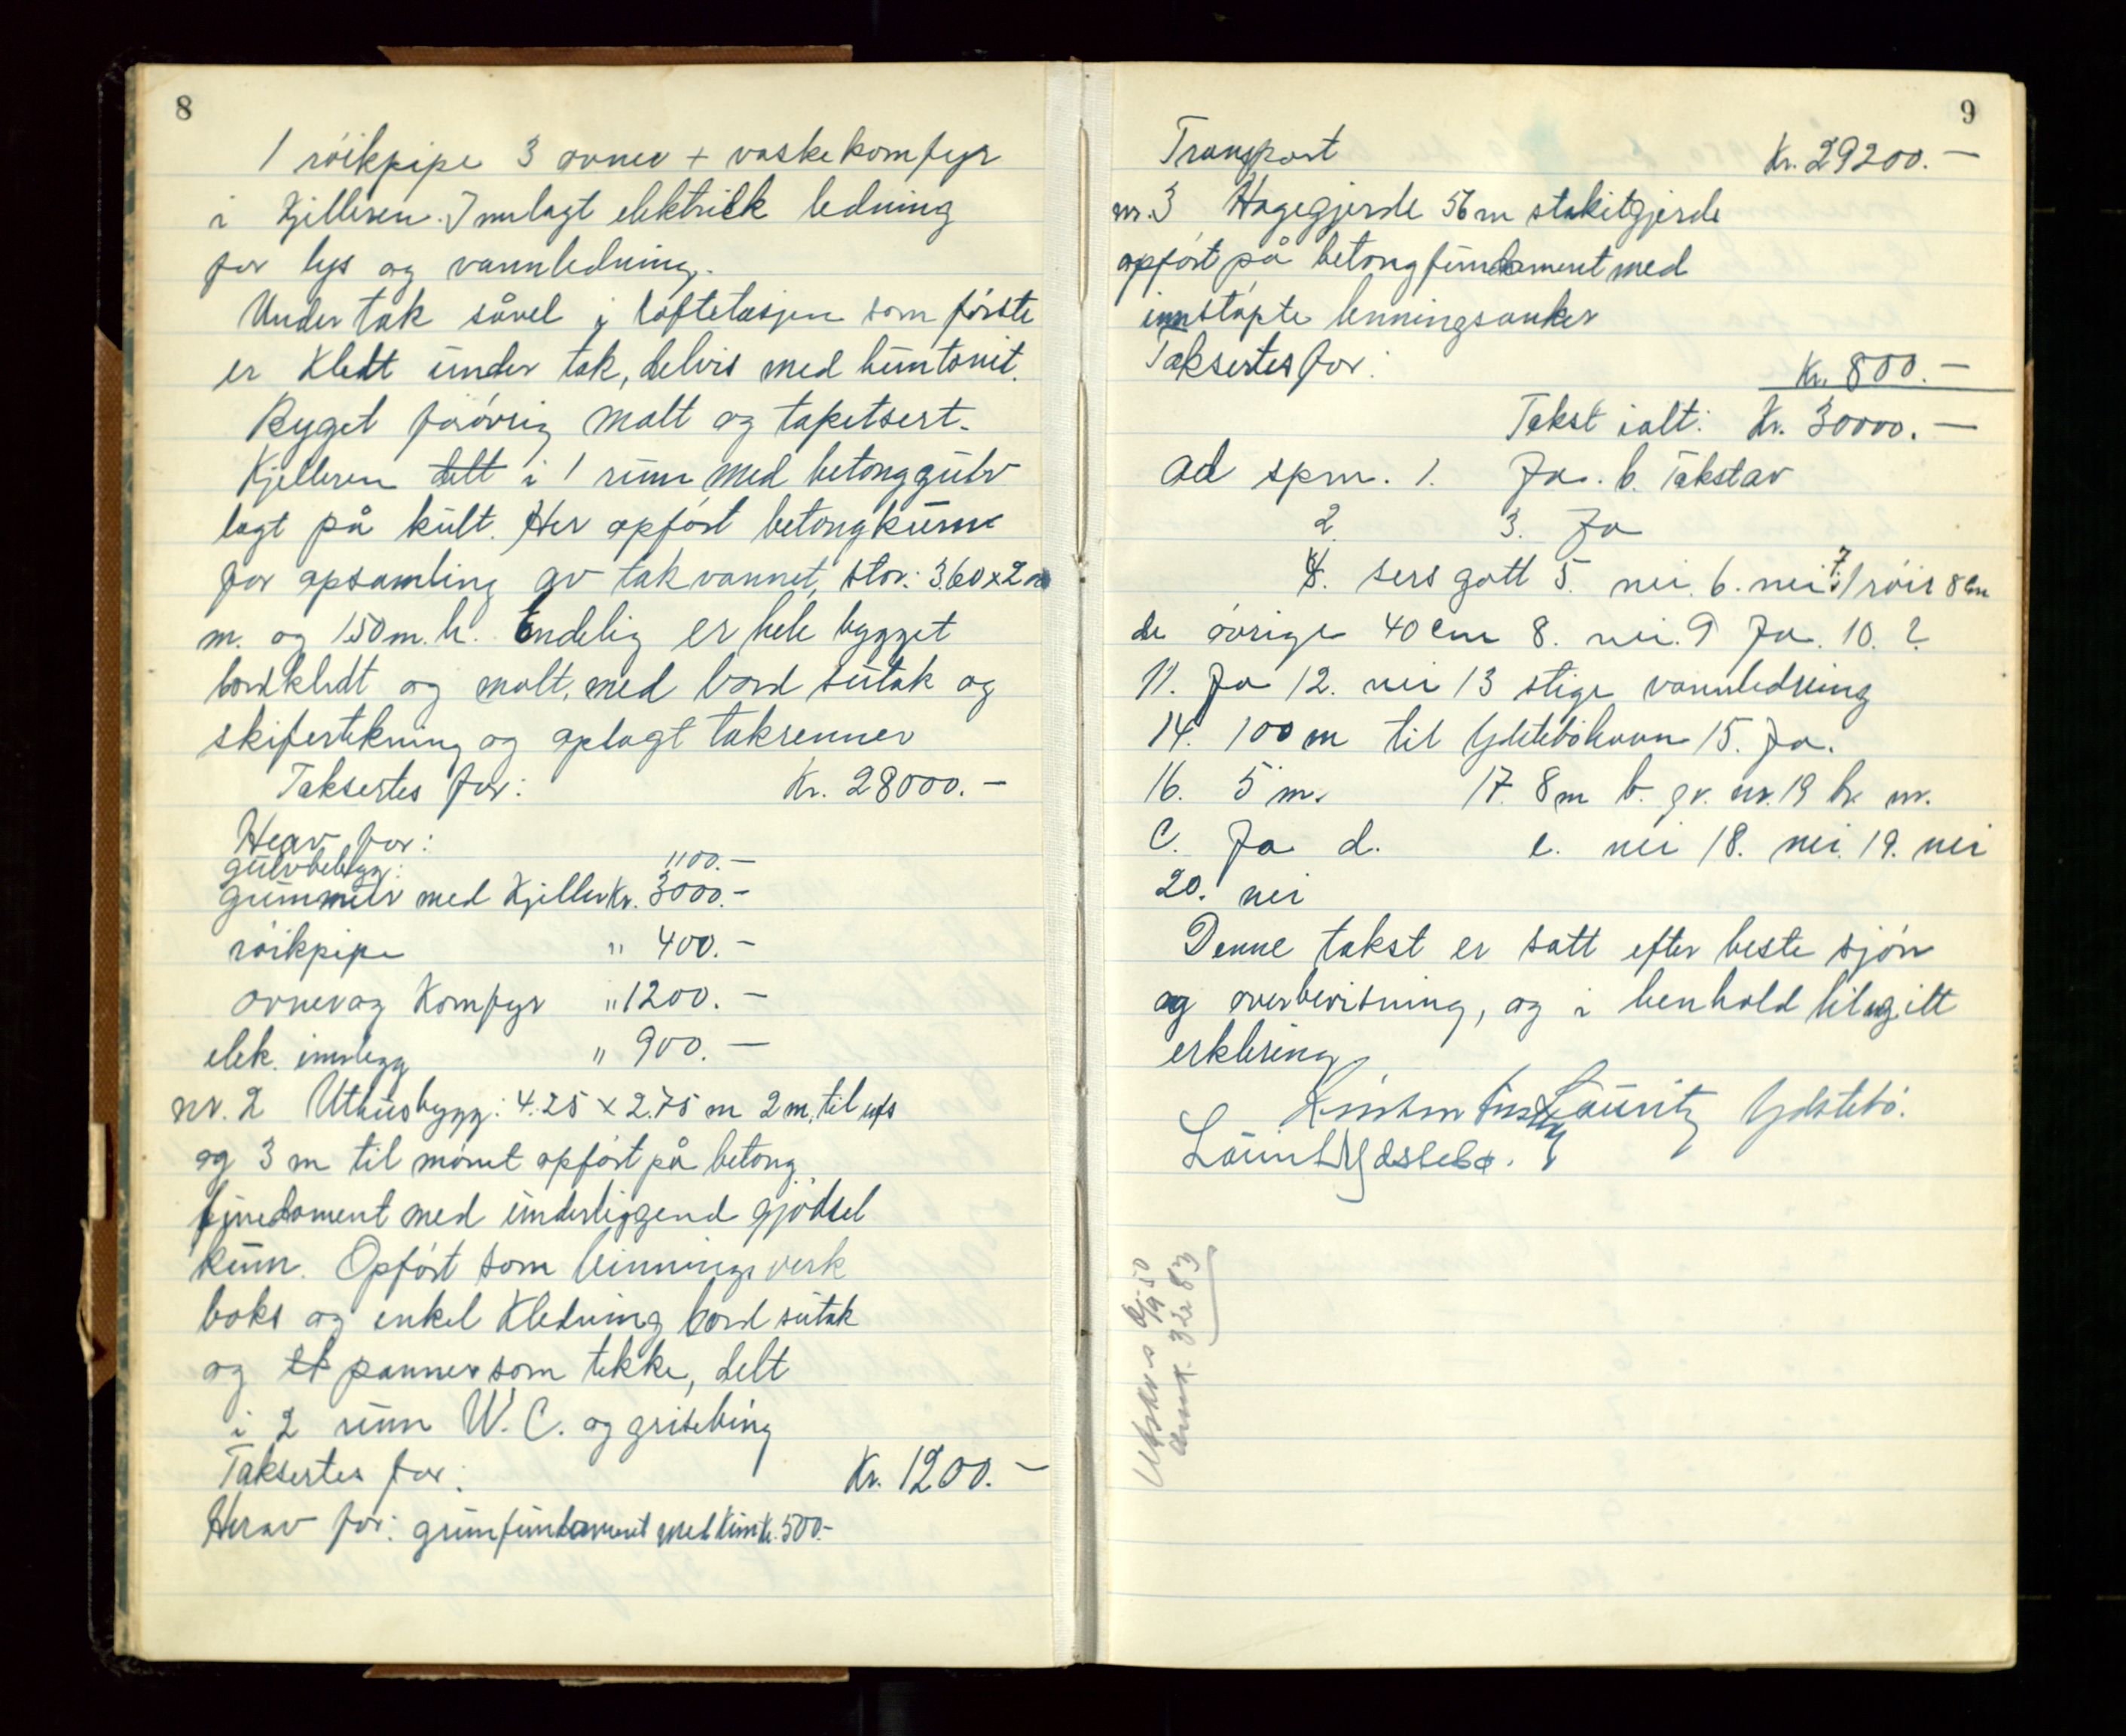 8
1 röikpipe 3 ovner + vaskekomfyr
i kjelleren. Innlagt elektrisk ledning
for lys og vannledning.
Under tak såvel i loftetasjen som förste
er kledt under tak, delvis med huntonit.
Byget forövrig malt og tapetsert.
Kjelleren delt i 1 rum med betonggulv
lagt på kult. Her opfört betongkum
for opsamling av takvannet, stor: 3.60 x 2
m. og 1.50 m. h. Endelig er hele bygget
bordkledt og malt, med bord sutak og
skifertekning og oplagt takrenner
Taksertes for: Kr. 28000.-
Herav for:
gulvbelegg: 1100.-
grunnmur med kjeller Kr. 3000.-
röikpipe " 400.-
ovner og komfyr " 1200.-
elek. innlegg " 900.-
nr. 2 Uthusbygg: 4.25 x 2.75 m 2 m. til ufs
og 3 m til mönet opfört på betong
fundament med underliggend gjödsel
kum. Opfört som binnings verk
boks og enkel kledning bord sutak
og panner som tekke, delt
i 2 rum W. C. og grisebing
Taksertes for: Kr. 1200.-
Herav for: grunfundament med kum Kr. 500.-
9
Transport Kr. 29200.-
nr. 3 Hagegjerde 56 m stakitgjerde
opfört på betongfundament med
innstöpte benningsanker
Taksertes for:
Kr. 800.-
Takst ialt: Kr. 30000.-
ad spm. 1. Ja. b. Takstav
2. 3. Ja
4. sers gott 5. nei. 6. nei 7. 1 röir 8 cm
de övrige 40 cm 8. nei. 9 Ja. 10. ?
11. Ja 12. nei 13 stige vannledning
14. 100 m til Ydsteböhavn 15. Ja.
16. 5 m. 17. 8 m b. gr. nr. 19 br. nr.
C. Ja d. e. nei 18. nei. 19. nei
20. nei
Denne takst er satt efter beste sjön
og overbevisning, og i henhold til avgitt
erklæring
Lauritz Ydstebö.
Ydstebø.
Utskrevs 19-50